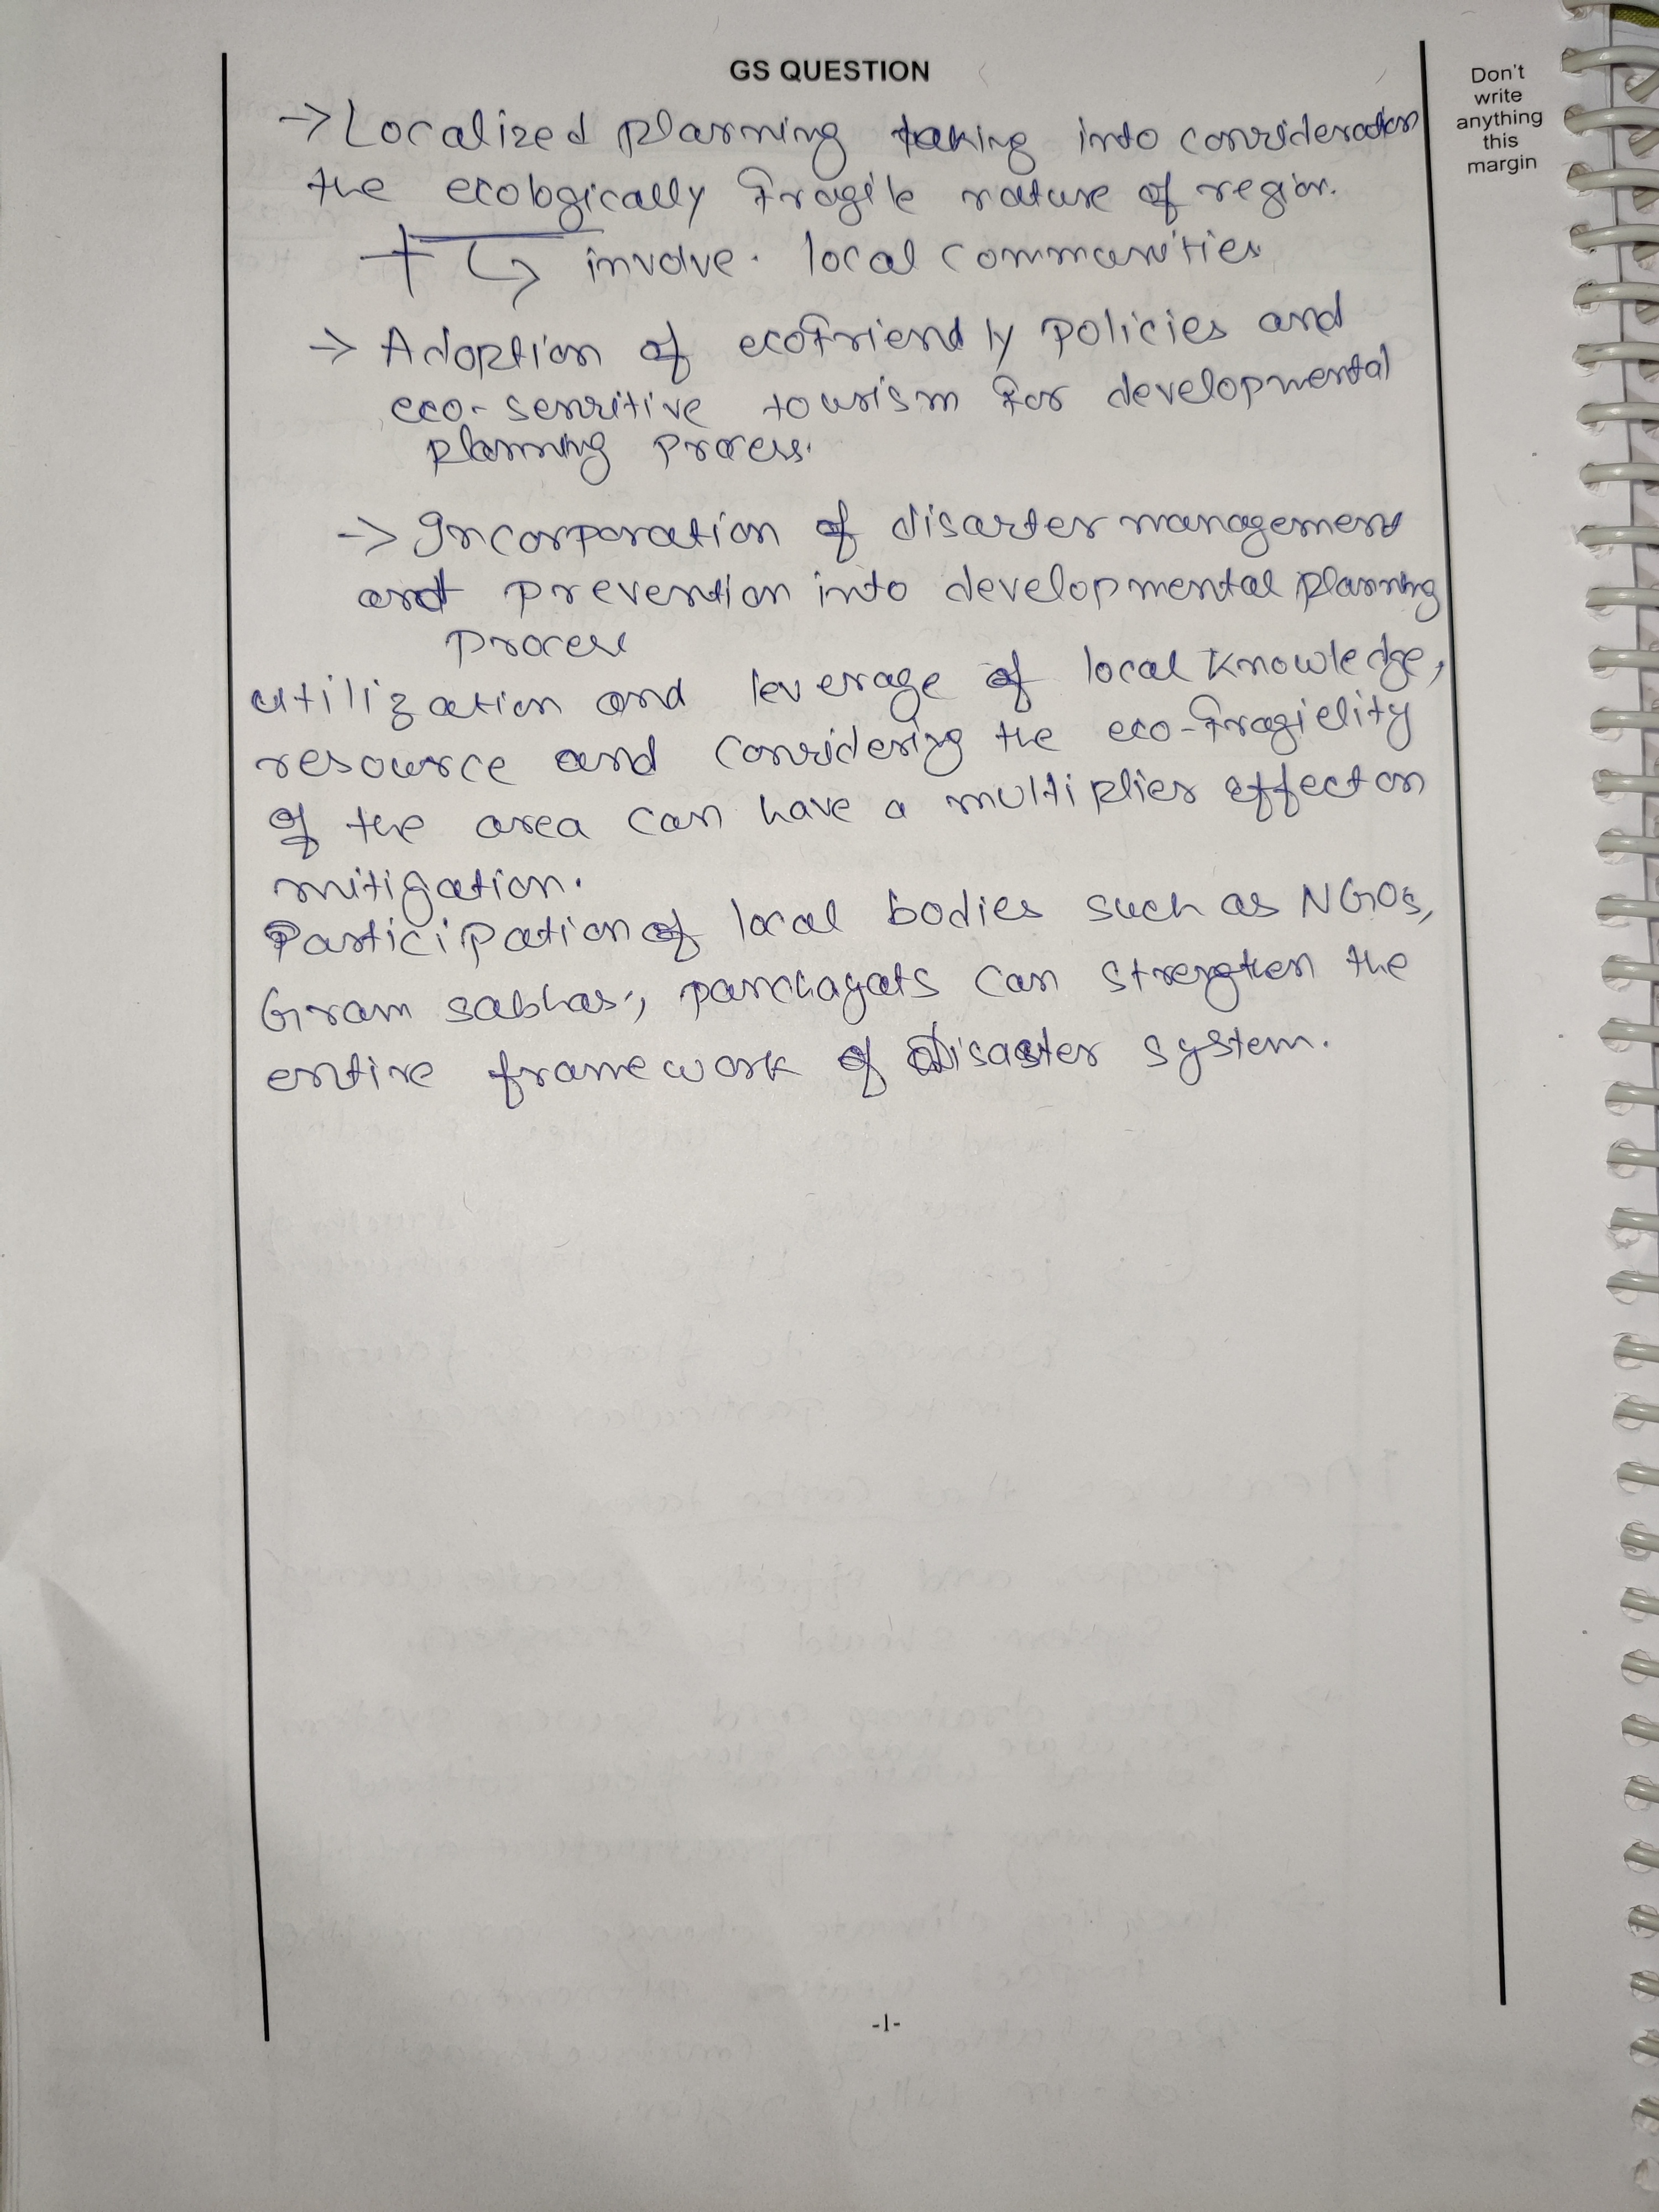 GS QUESTION
Don't
write
anything
this
margin
→ Localized planning taking into consideration
the ecologically fragile nature of region.
↳ involve local communities
→ Adoption of ecofriendly policies and
eco-sensitive tourism for developmental
planning process.
→ Incorporation of disaster management
and prevention into developmental planning
process
utilization and leverage of local knowledge,
resource and considering the eco-fragielity
of the area can have a multiplier effect on
mitigation.
Participation of local bodies such as NGOs,
Gram sabhas, panchayats can strengthen the
entire framework of Disaster system.
-1-